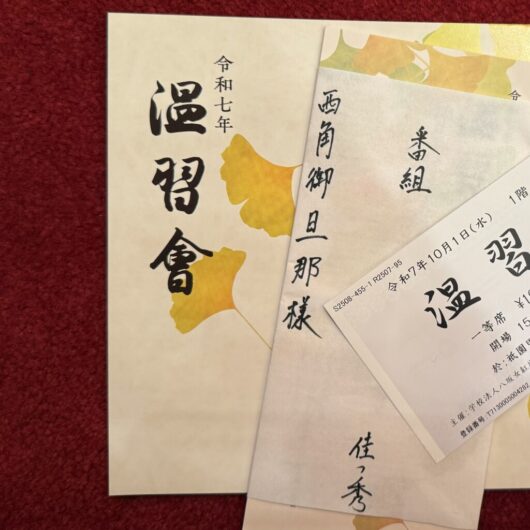 令和七年
温習會
番組
西角御旦那様
佳つ秀
S2508-455-1 R2507-95
令和7年10月1日(水) 1階
温習
一等席
開場 15
於:祇園
主催:学校法人八坂女紅
登録番号 T7130005004282